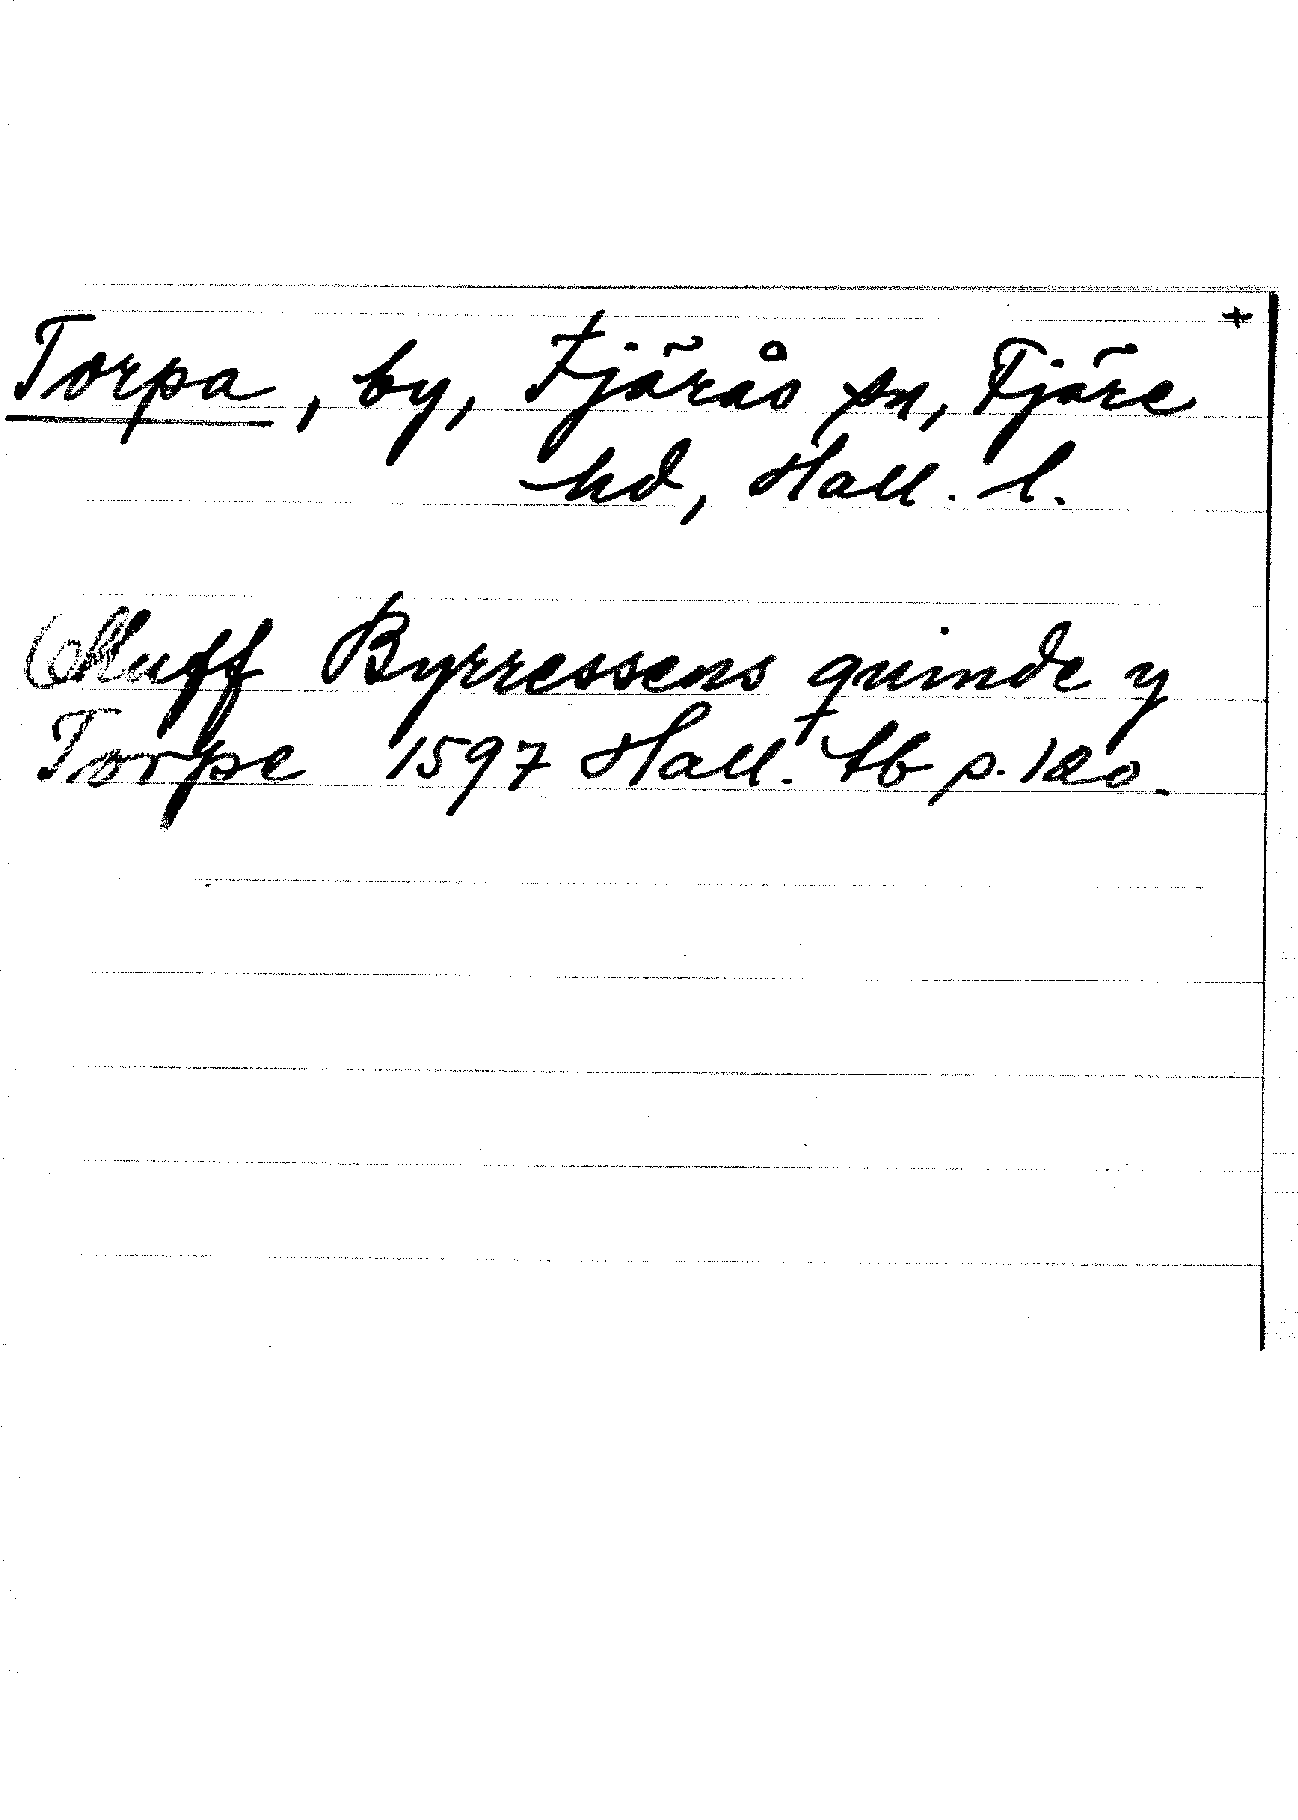 +
Torpa, by, Fjärås sn, Fjäre
hd, Hall. l.
Oluff Byrressens quinde y
Torpe 1597 Hall. tb p. 120.